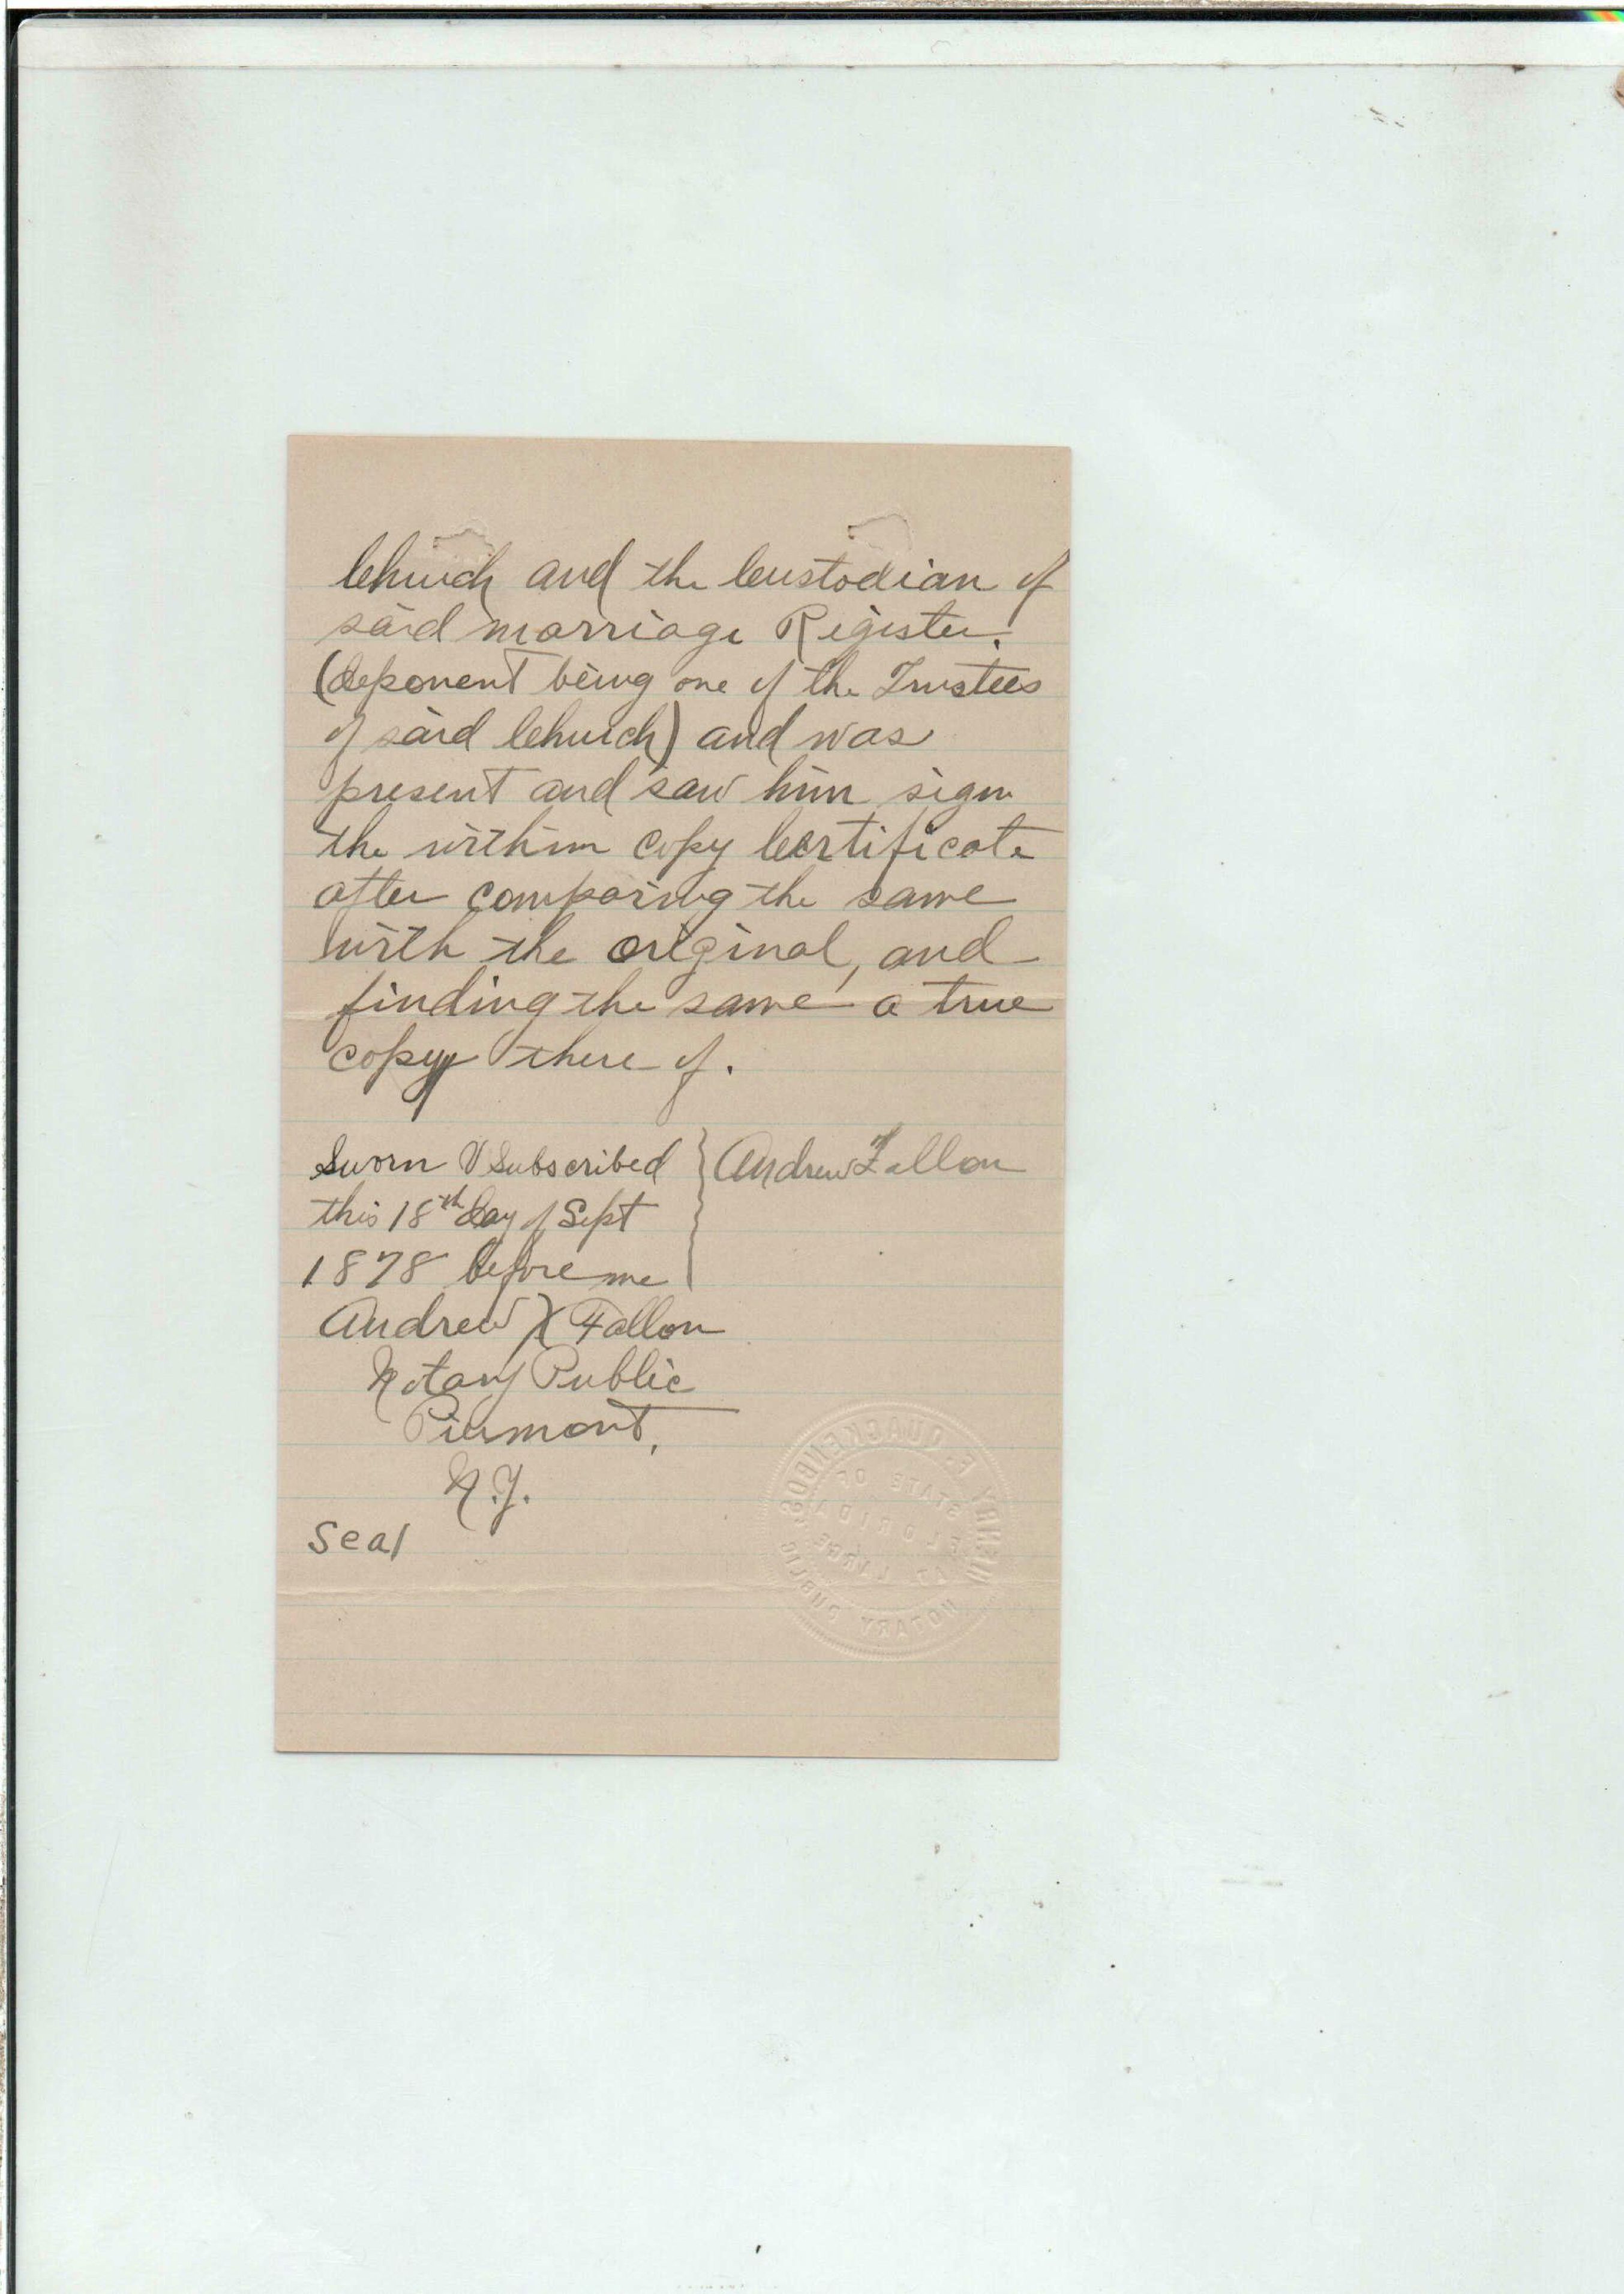 Church and the Custodian of
said marriage Register.
(deponent being one of the Trustees
of said Church) and was
present and saw him sign
the within copy Certificate
after comparing the same
with the original, and
finding the same a true
copy there of.
Sworn & Subscribed
this 18th day of Sept
1878 before me
Andrew Fallon
Andrew X Fallon
Notary Public
Piermont,
N.Y.
Seal
HENRY F. QUACKENBOS,
STATE OF
FLORIDA
AT LARGE
NOTARY PUBLIC